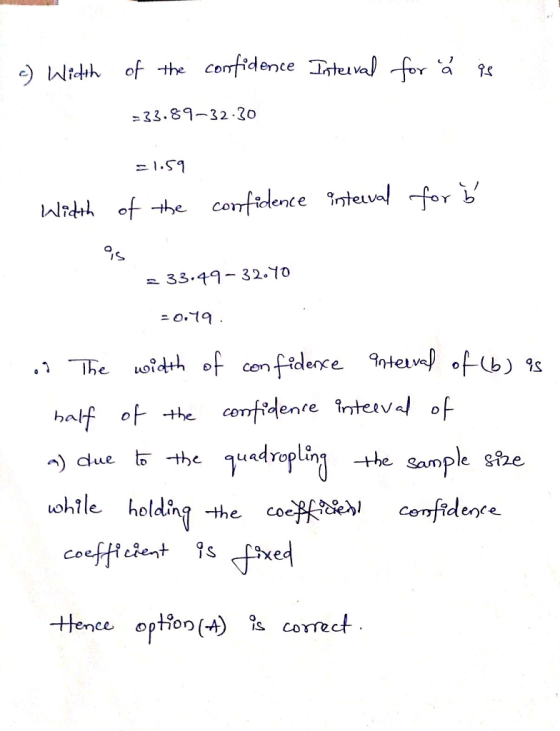 c) Width of the confidence Interval for 'a' is
=33.89-32.30
=1.59
Width of the confidence interval for 'b'
is
= 33.49-32.70
=0.79.
∴ The width of confidence interval of (b) is
half of the confidence interval of
a) due to the quadropling the sample size
while holding the confidence
coefficient is fixed
Hence option (A) is correct.